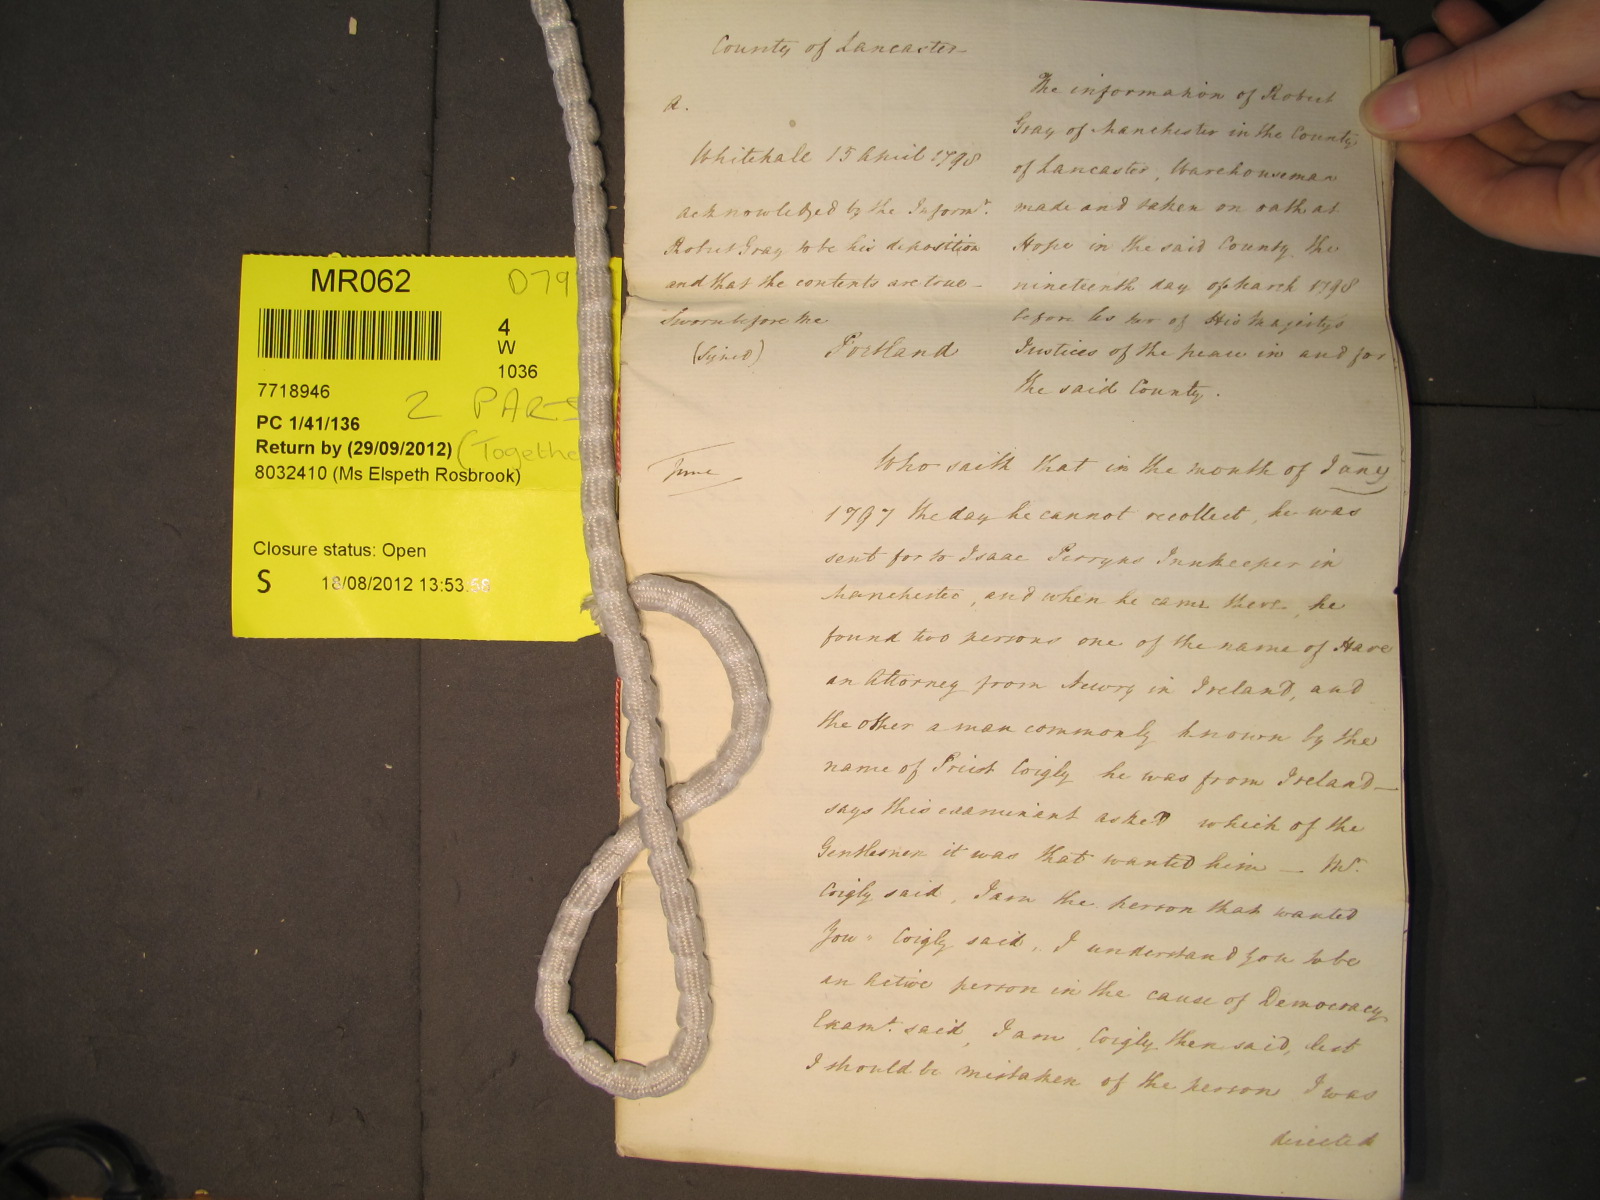 MR062
D79
4
W
1036
7718946
2 PARTS
PC 1/41/136
Return by (29/09/2012)
(Togethe
8032410 (Ms Elspeth Rosbrook)
Closure status: Open
S 18/08/2012 13:53:58
County of Lancaster
a.
Whitehall 15 April 1798
acknowledged by the Informt.
Robert Gray to be his deposition
and that the contents are true -
Sworn before me
(Signed) Portland
The information of Robert
Gray of Manchester in the County
of Lancaster, Warehouseman
made and taken on oath at
Hope in the said County the
nineteenth day of March 1798
before Us two of His Majesty's
Justices of the peace in and for
the said County.
June
Who saith that in the month of Jany
1797 the day he cannot recollect, he was
sent for to Isaac Perryns Innkeeper in
Manchester, and when he came there, he
found two persons one of the name of Hare
an Attorney from Newry in Ireland, and
the other a man commonly known by the
name of Priest Coigly he was from Ireland -
says this examinant asked which of the
Gentlemen it was that wanted him - Mr.
Coigly said, I am the person that wanted
You - Coigly said, I understand you to be
an Active person in the cause of Democracy
Examt. said, I am, Coigly then said, lest
I should be mistaken of the person I was
directed